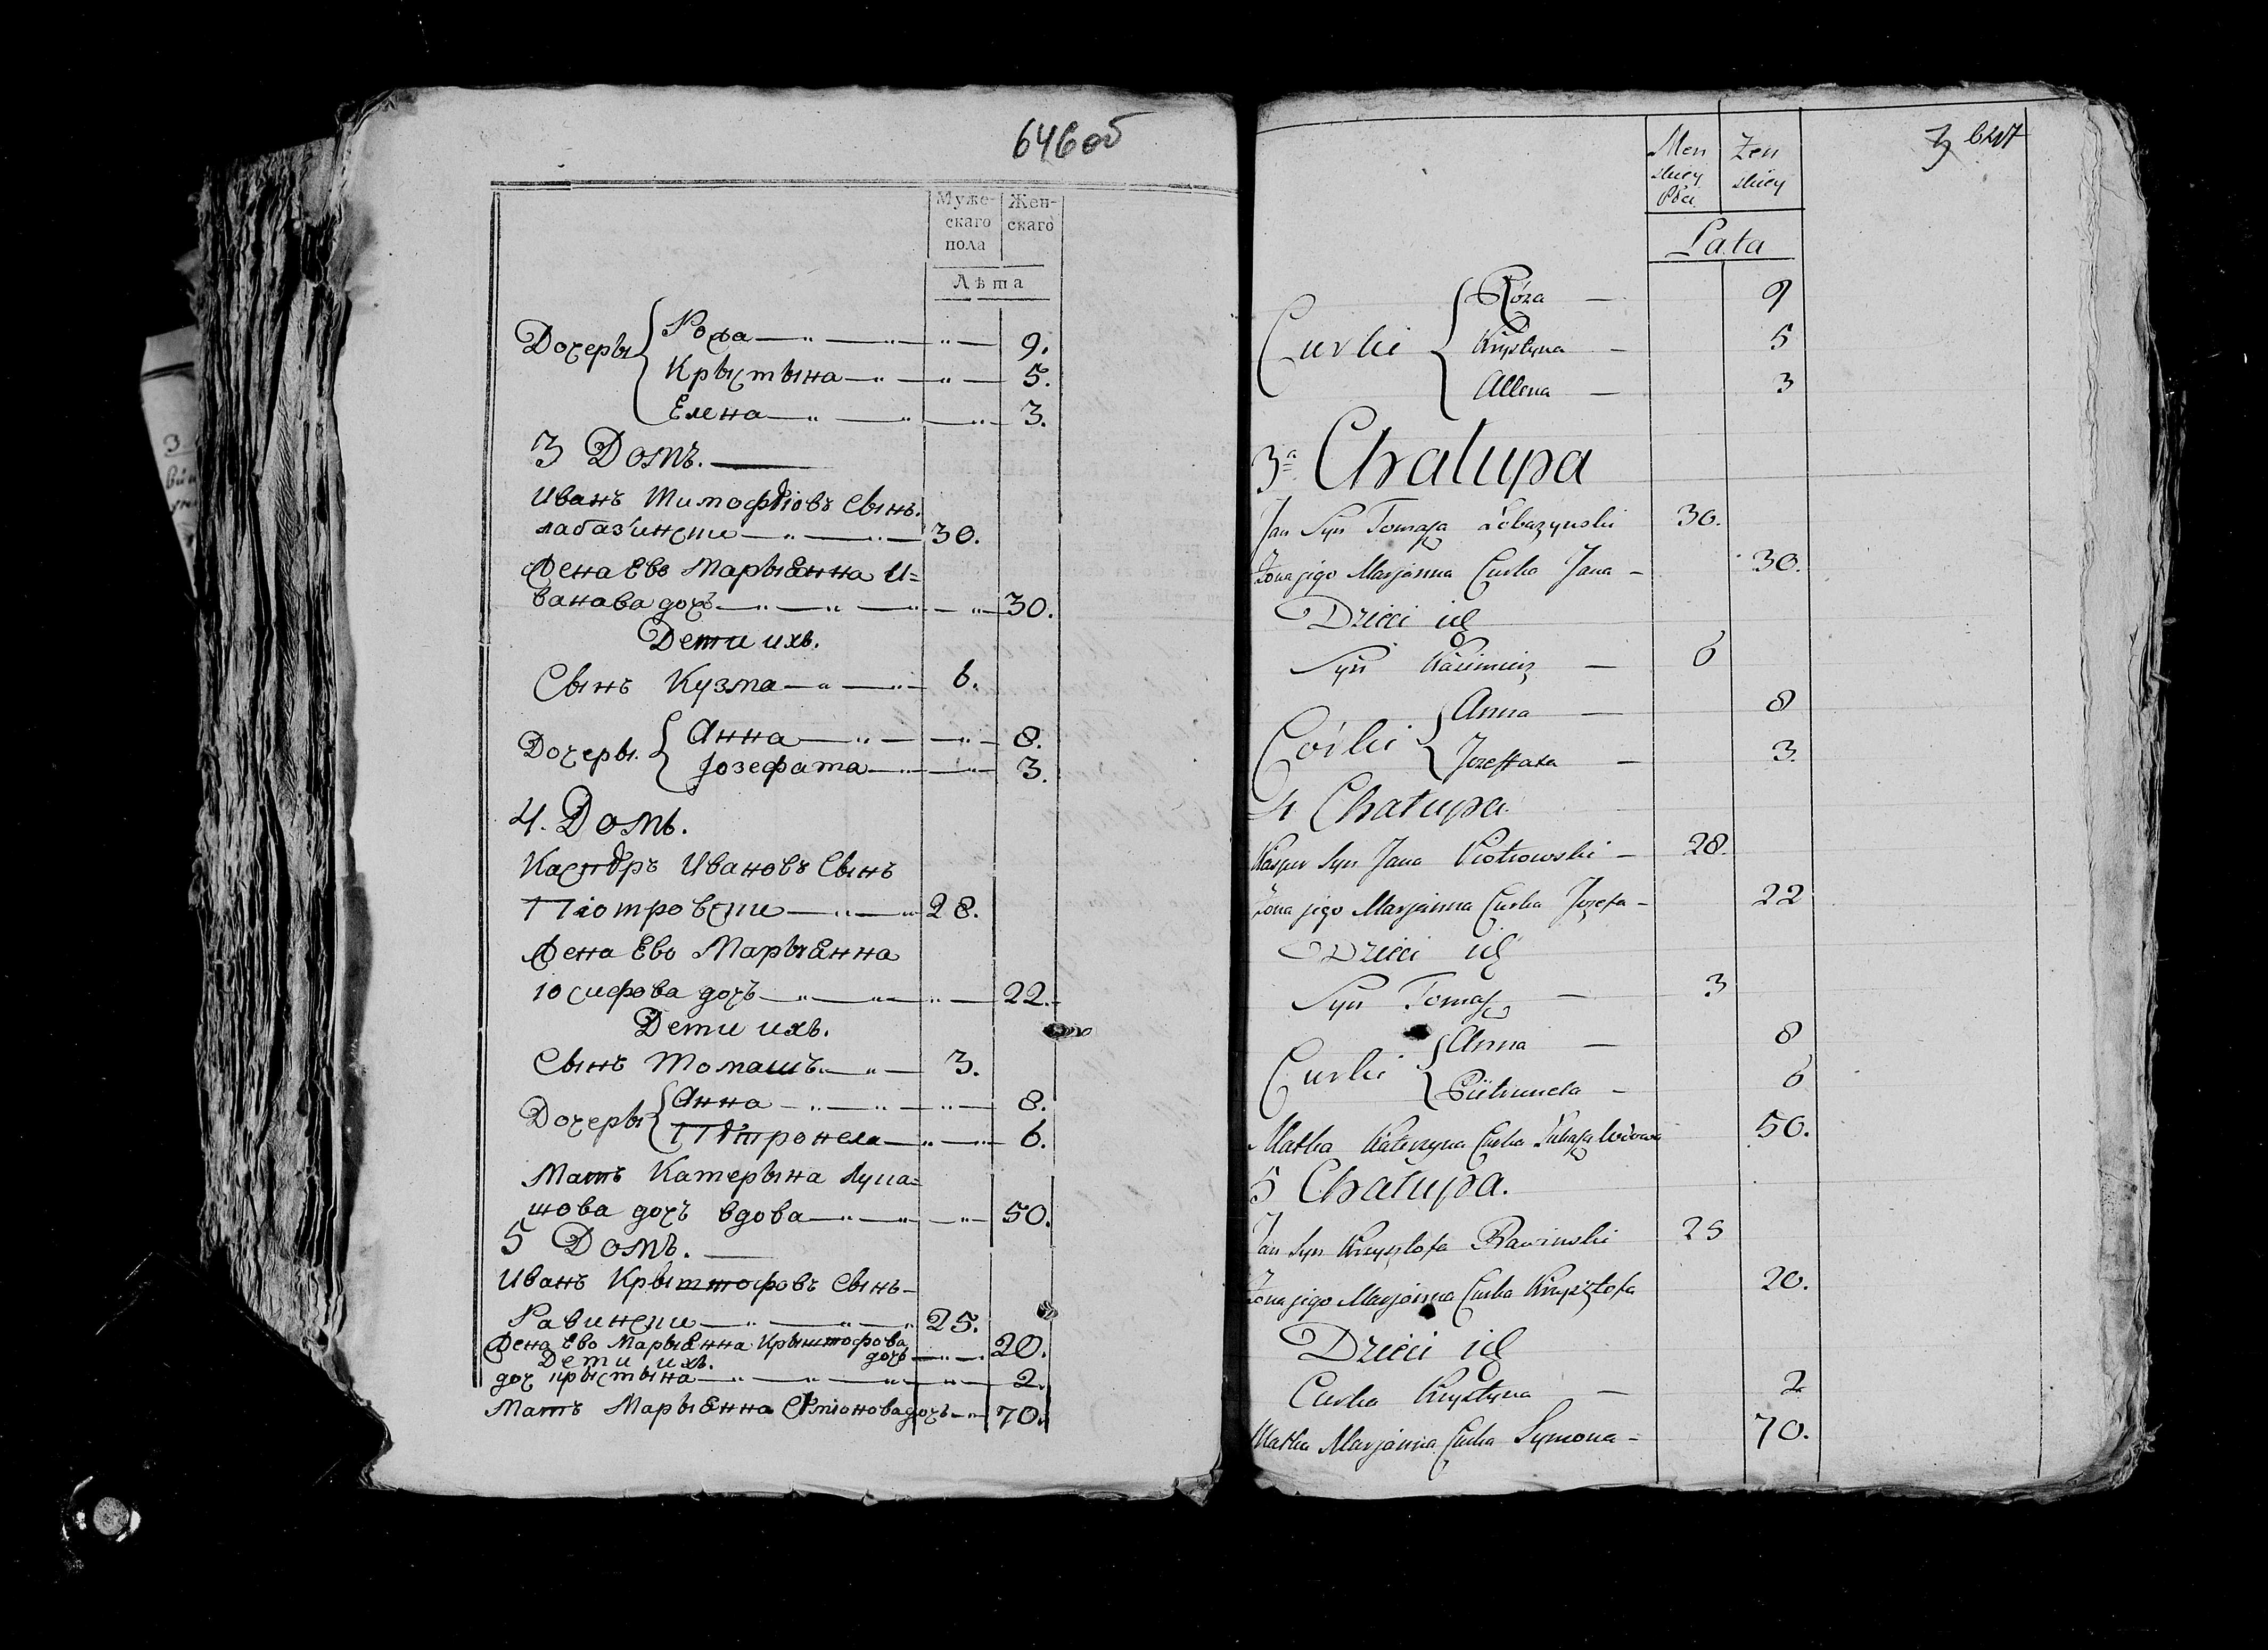 646 об
Муже-
скаго
пола
Жен-
скаго
Лѣта
Дочеры
Рожа 9.
Крыстына 5.
Елена 3.
3 Домъ.
Иванъ Тимофѣiовъ Сынъ.
лабазински 30.
Жена Ево Марыянна И=
ванава дочъ 30.
Дети ихъ.
Сынъ Кузма 6.
Дочеры.
Анна 8.
Jозефата 3.
4. Домъ.
Каспѣръ Ивановъ Сынъ
Пiотровски 28.
Жена Ево Марыянна
Юсифова дочъ 22.
Дети ихъ.
Сынъ Томашъ 3.
Дочеры
Анна 8.
Пѣтронела 6.
Мать Катерына лука=
шова дочъ вдова 50.
5 Домъ.
Иванъ Крыштофовъ Сынъ
Равински 25.
Жена Ево Марыянна Крыштофова
дочъ 20.
Дети ихъ.
доч крыстына 2.
Мать Марыянна Сѣмiонова дочъ 70.
3
Men
skiey
Płci
Żen
skiey
Lata
Curki
Róza 9
Krystyna 5
Allena 3
3a Chałupa
Jan Syn Tomasza Łobazynski 30.
Zona jego Marjanna Curka Jana 30.
Dzieci ich
Syn Kazimierz 6
Córki
Anna 8
Jozeffata 3.
4 Chałupa.
Kasper Syn Jana Piotrowski 28.
Żona jego Marjanna Curka Jozefa 22
Dzieci ich
Syn Tomasz 3
Curki
Anna 8
Pietrunela 6
Matka Katerzyna Curka Łukasza wdowa 50.
5 Chałupa.
Jan Syn Krzysztofa Rawinski 25
Żona jego Marjanna Curka Krzysztofa 20.
Dzieci ich
Curka Krystyna 2
Matka Marjanna Curka Symona 70.